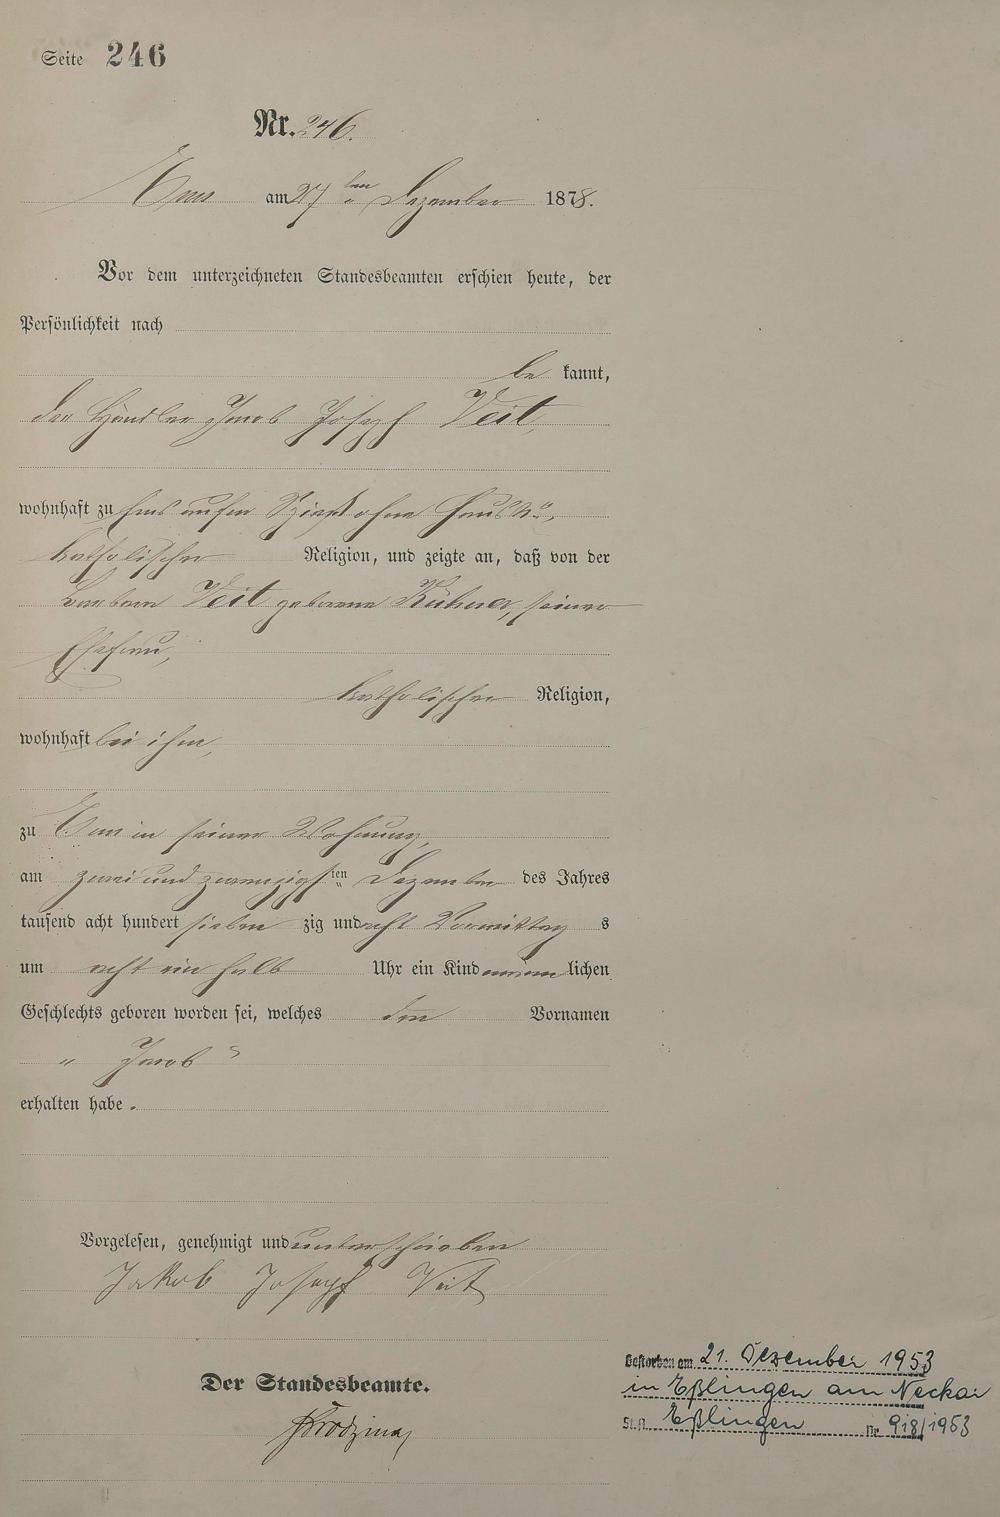 Seite 246
Nr. 246.
Ems am 27ten Dezember 1878.
Vor dem unterzeichneten Standesbeamten erschien heute, der
Persönlichkeit nach
be kannt,
der Händler Jacob Joseph Veit,
wohnhaft zu Ems auf'm ohne Haus N°,
katholischer Religion, und zeigte an, daß von der
Barbara Veit geborene Kühner, seiner
Ehefrau,
katholischer Religion,
wohnhaft bei ihm,
zu Ems in seiner Wohnung,
am zwei und zwanzigsten Dezember des Jahres
tausend acht hundert sieben zig und acht Vormittag s
um acht ein halb Uhr ein Kind männ lichen
Geschlechts geboren worden sei, welches den Vornamen
„ Jacob "
erhalten habe.
Vorgelesen, genehmigt und unterschrieben
Jakob Joseph Veit
Der Standesbeamte.
Gestorben am 21. Dezember 1953
in Eßlingen am Neckar
St.A. Eßlingen Nr. 918/1953